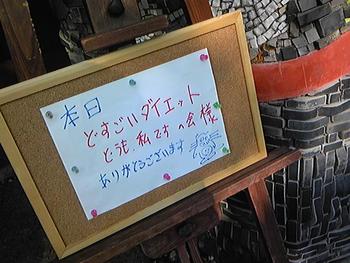 本日
どすごいダイエット
とうとう私ですの会様
ありがとうございます